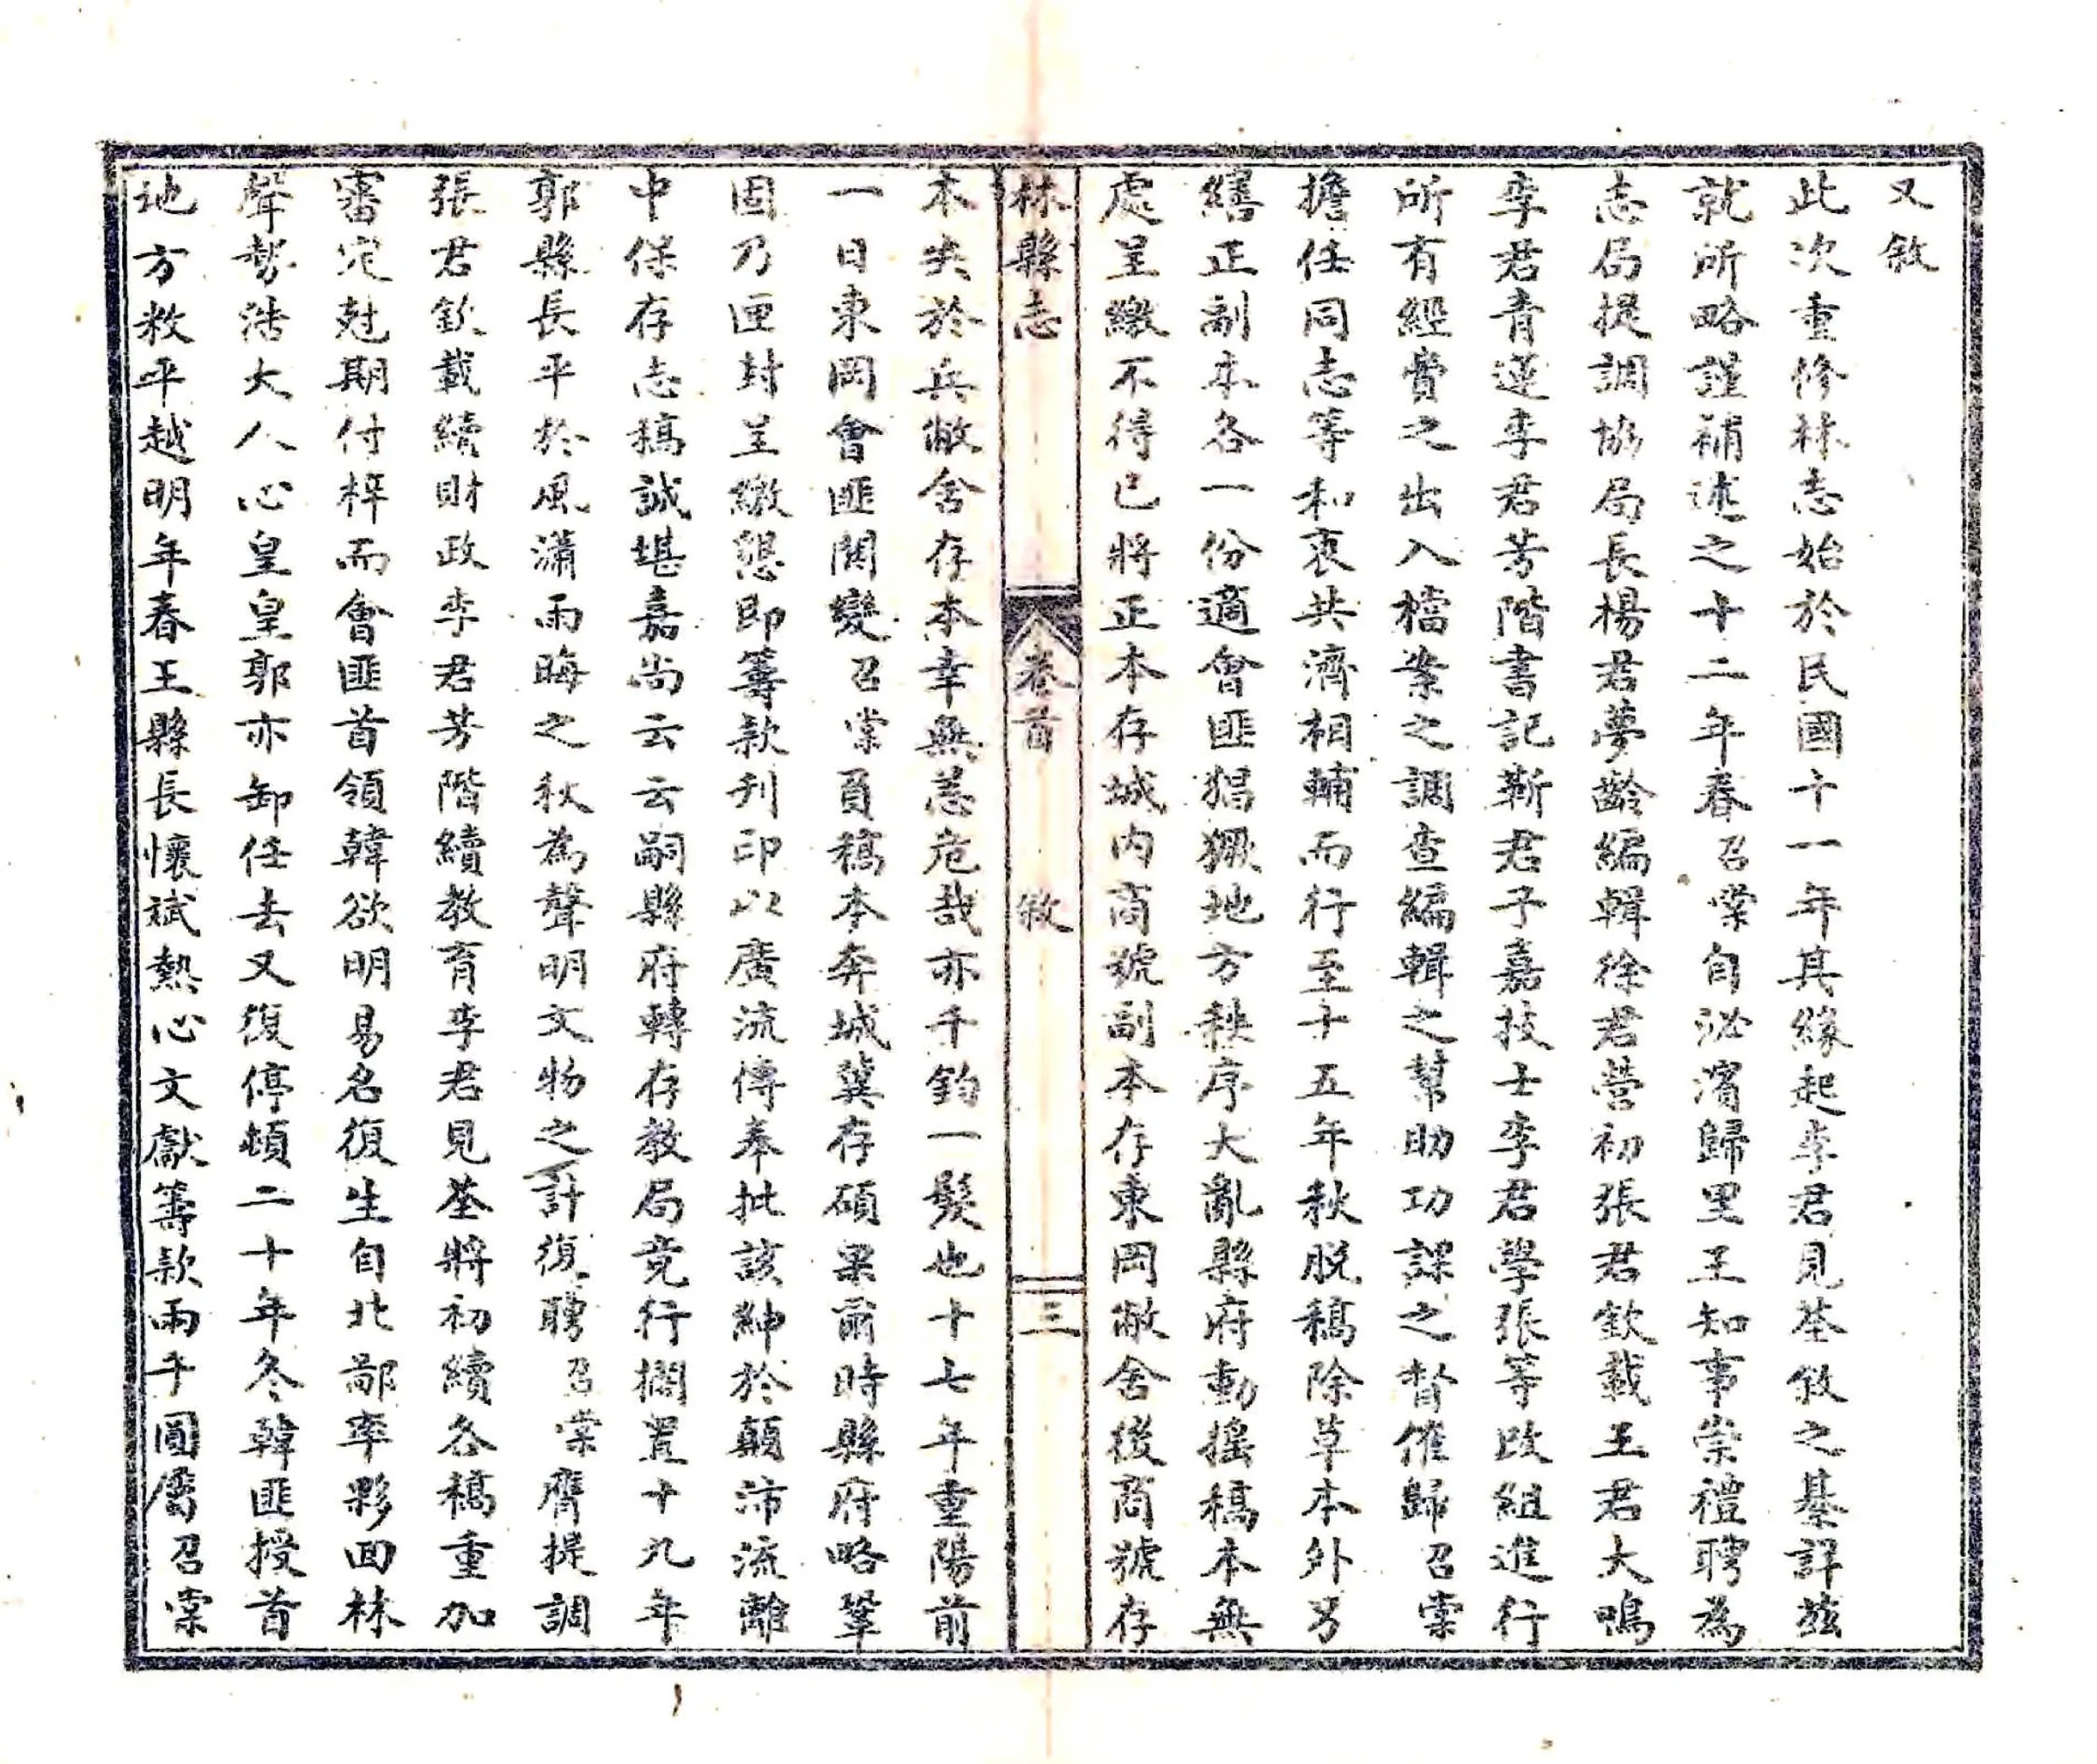 又敘
此次重修林志始於民國十一年其緣起李君見荃敘之綦詳茲
就所略謹補述之十二年春召棠自泌濱歸里王知事崇禮聘為
志局提調協局長楊君夢齡編輯徐君營初張君欽載王君大鳴
李君青蓮李君芳階書記靳君子嘉技士李君學張等政組進行
所有經費之出入檔案之調查編輯之幫助功課之督催歸召棠
擔任同志等和衷共濟相輔而行至十五年秋脫稿除草本外另
繕正副本各一份適會匪猖獗地方秩序大亂縣府動搖稿本無
處呈繳不得已將正本存城內商號副本存東岡敝舍後商號存
林縣志 卷首 敘 三
本失於兵敝舍存本幸無恙危哉亦千鈞一髮也十七年重陽前
一日東岡會匪閧變召棠負稿本奔城冀存碩果爾時縣府略鞏
固乃匣封呈繳懇即籌款刋印以廣流傳奉批該紳於顛沛流離
中保存志稿誠堪嘉尚云云嗣縣府轉存教局竟行擱置十九年
郭縣長平於風瀟雨晦之秋為聲明文物之計復聘召棠膺提調
張君欽載續財政李君芳階續教育李君見荃將初續各稿重加
審定尅期付梓而會匪首領韓欲明易名復生自北鄗率夥回林
聲勢浩大人心皇皇郭亦卸任去又復停頓二十年冬韓匪授首
地方救平越明年春王縣長懷斌熱心文獻籌款兩千圓屬召棠